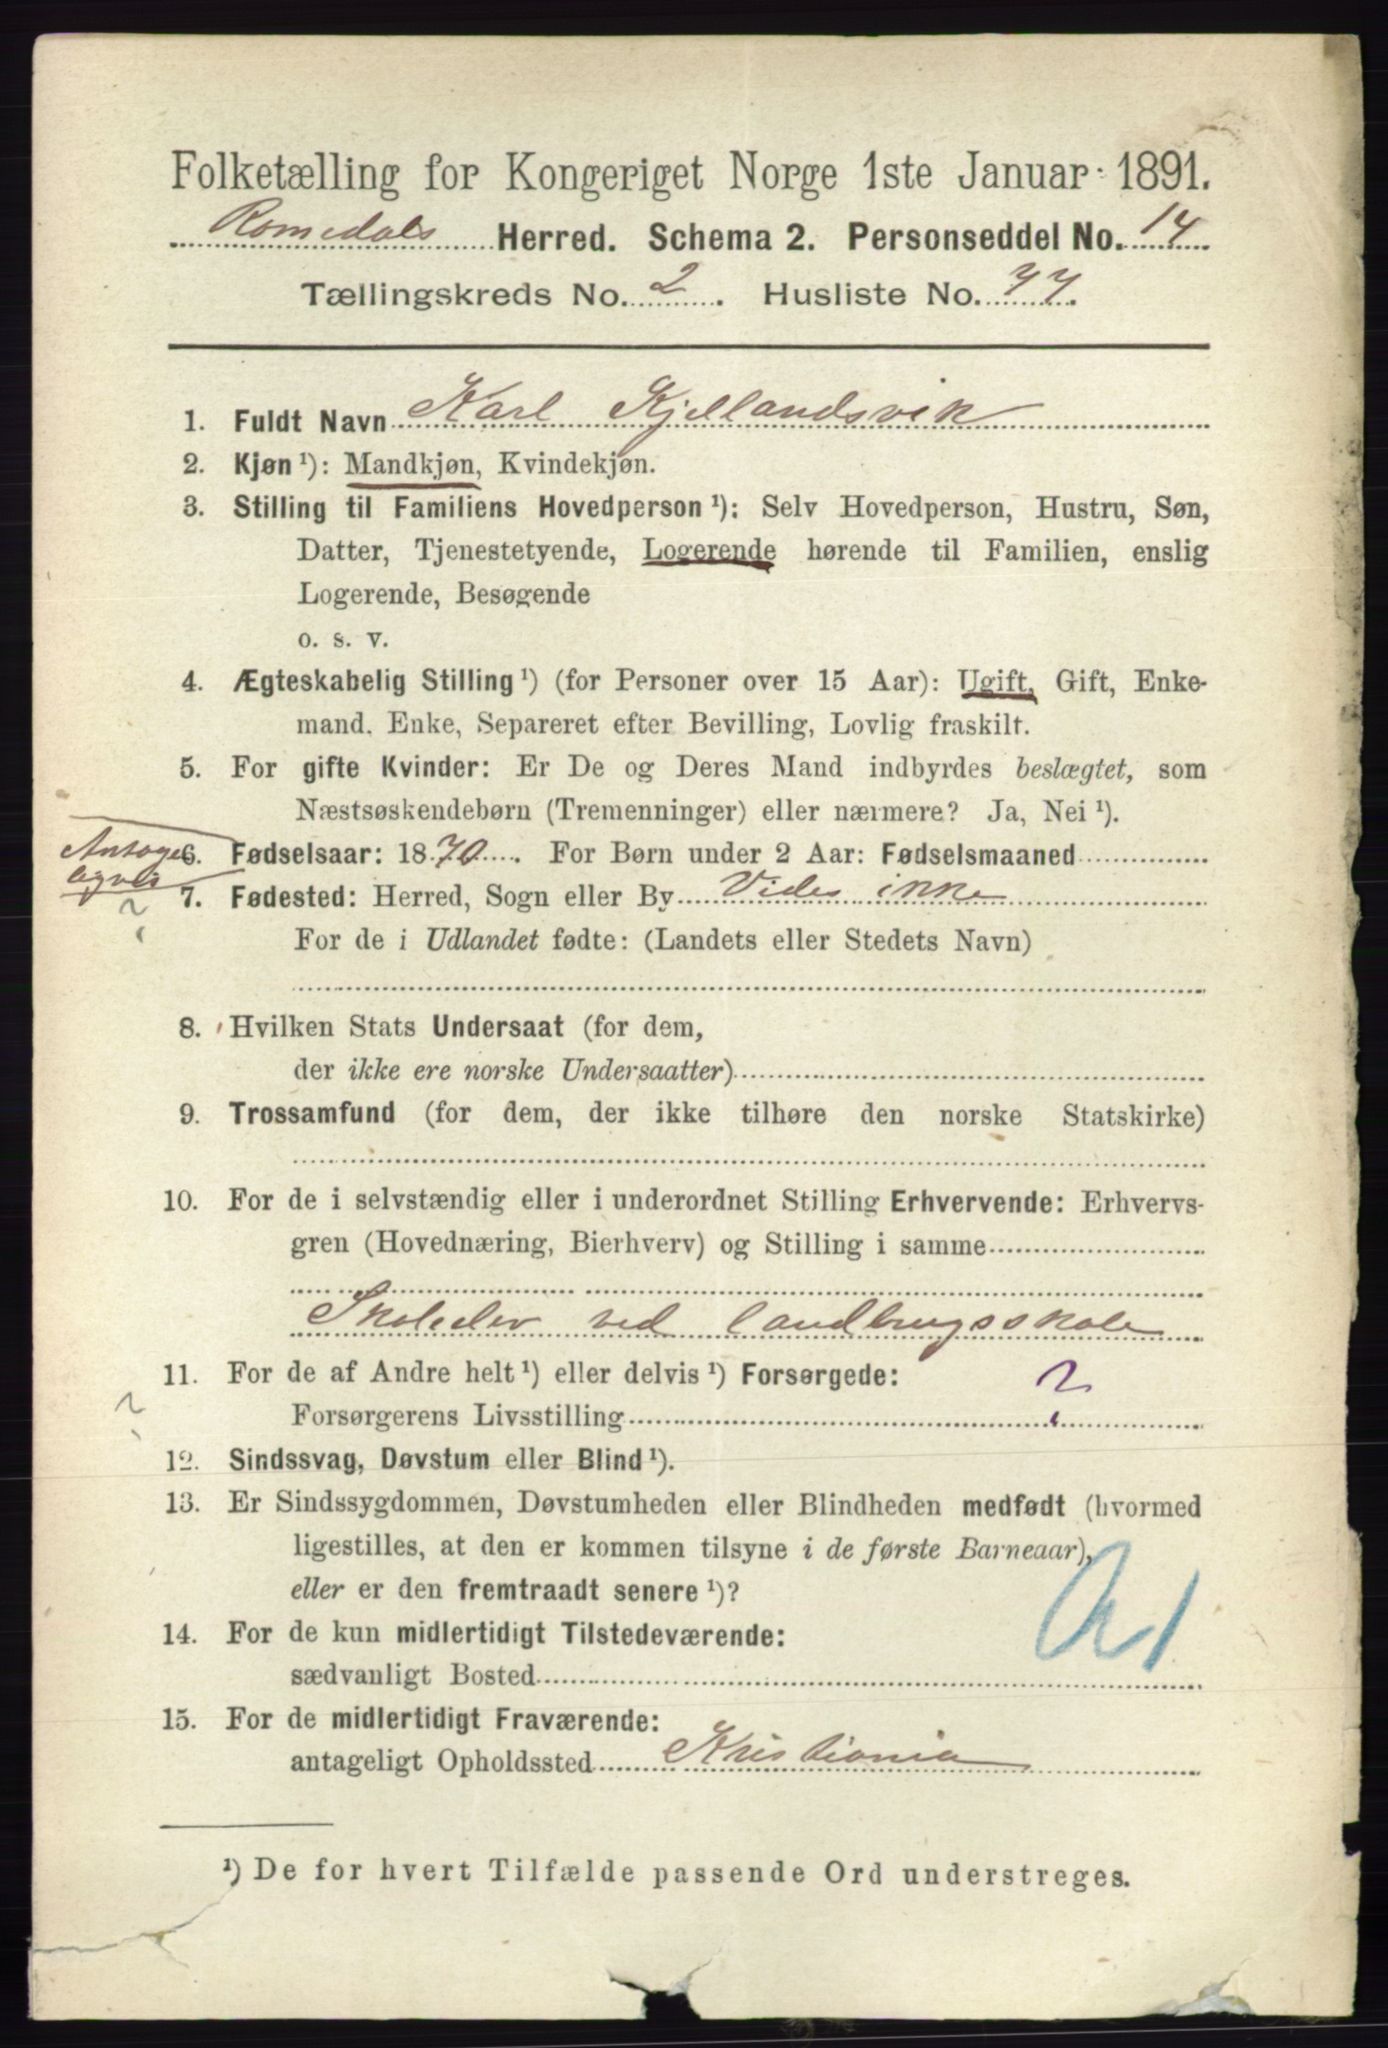 Folketælling for Kongeriget Norge 1ste Januar 1891.
Romedals Herred. Schema 2. Personseddel No. 14
Tællingskreds No. 2. Husliste No. 77.
1. Fuldt Navn Karl Kjellandsvik
2. Kjøn ¹): Mandkjøn, Kvindekjøn.
3. Stilling til Familiens Hovedperson ¹): Selv Hovedperson, Hustru, Søn,
Datter, Tjenestetyende, Logerende hørende til Familien, enslig
Logerende, Besøgende
o. s. v.
4. Ægteskabelig Stilling ¹) (for Personer over 15 Aar): Ugift, Gift, Enke-
mand, Enke, Separeret efter Bevilling, Lovlig fraskilt.
5. For gifte Kvinder: Er De og Deres Mand indbyrdes beslægtet, som
Næstsøskendebørn (Tremenninger) eller nærmere? Ja, Nei ¹).
Antage-
ligvis
6. Fødselsaar: 1870. For Børn under 2 Aar: Fødselsmaaned
7. Fødested: Herred, Sogn eller By Vides ikke
?
For de i Udlandet fødte: (Landets eller Stedets Navn)
8. Hvilken Stats Undersaat (for dem,
der ikke ere norske Undersaatter)
9. Trossamfund (for dem, der ikke tilhøre den norske Statskirke)
10. For de i selvstændig eller i underordnet Stilling Erhvervende: Erhvervs-
gren (Hovednæring, Bierhverv) og Stilling i samme
Skoleelev ved landbrugsskole
11. For de af Andre helt ¹) eller delvis ¹) Forsørgede:
? Forsørgerens Livsstilling ?
12. Sindssvag, Døvstum eller Blind ¹).
13. Er Sindssygdommen, Døvstumheden eller Blindheden medfødt (hvormed
ligestilles, at den er kommen tilsyne i de første Barneaar),
eller er den fremtraadt senere ¹)?
14. For de kun midlertidigt Tilstedeværende:
sædvanligt Bosted
15. For de midlertidigt Fraværende:
antageligt Opholdssted Kristiania
¹) De for hvert Tilfælde passende Ord understreges.